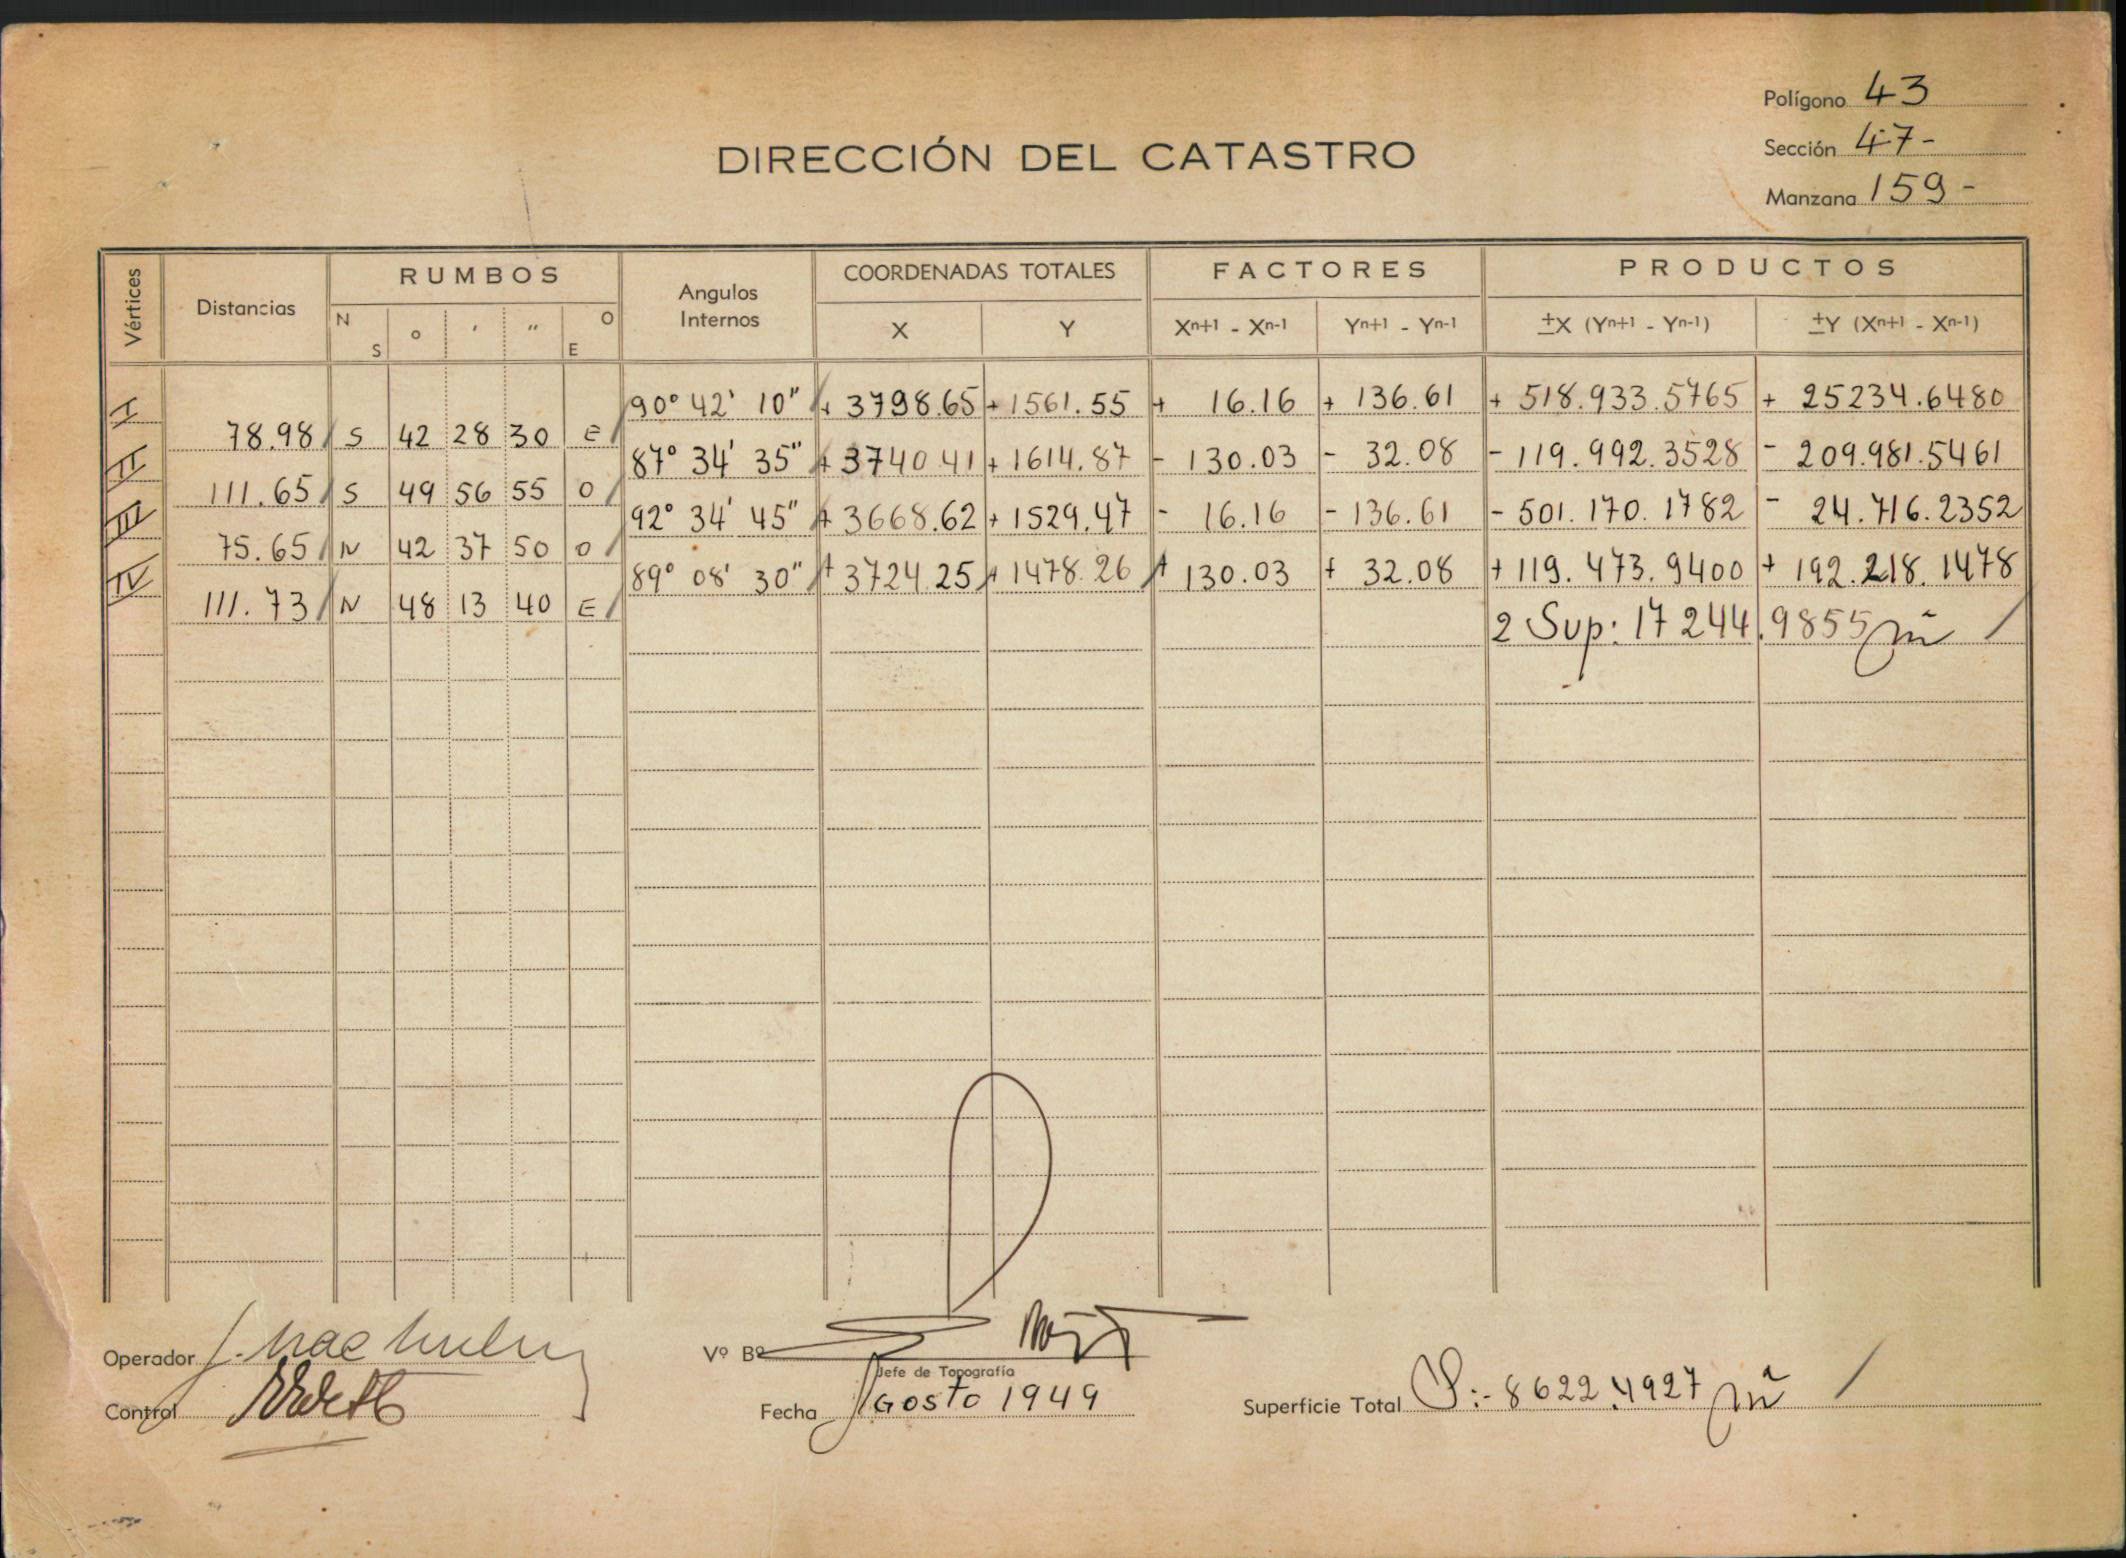 Polígono 43
Sección 47-
Manzana 159-
DIRECCIÓN DEL CATASTRO
Vértices Distancias RUMBOS Angulos Internos COORDENADAS TOTALES FACTORES PRODUCTOS
N S ° ' " O E X Y Xn+1 - Xn-1 Yn+1 - Yn-1 ±X (Yn+1 - Yn-1) ±Y (Xn+1 - Xn-1)
I 90° 42' 10" + 3798.65 + 1561.55 + 16.16 + 136.61 + 518.933.5765 + 25234.6480
78.98 S 42 28 30 E
II 87° 34' 35" + 3740.41 + 1614.87 - 130.03 - 32.08 - 119.992.3528 - 209.981.5461
111.65 S 49 56 55 O
III 92° 34' 45" + 3668.62 + 1529.47 - 16.16 - 136.61 - 501.170.1782 - 24.716.2352
75.65 N 42 37 50 O
IV 89° 08' 30" + 3724.25 + 1478.26 + 130.03 + 32.08 + 119.473.9400 + 192.218.1478
111.73 N 48 13 40 E
2 Sup: 17244.9855 m²
Operador
Vº Bº
Jefe de Topografía
Control
Fecha Agosto 1949
Superficie Total S:- 8622.4927 m²